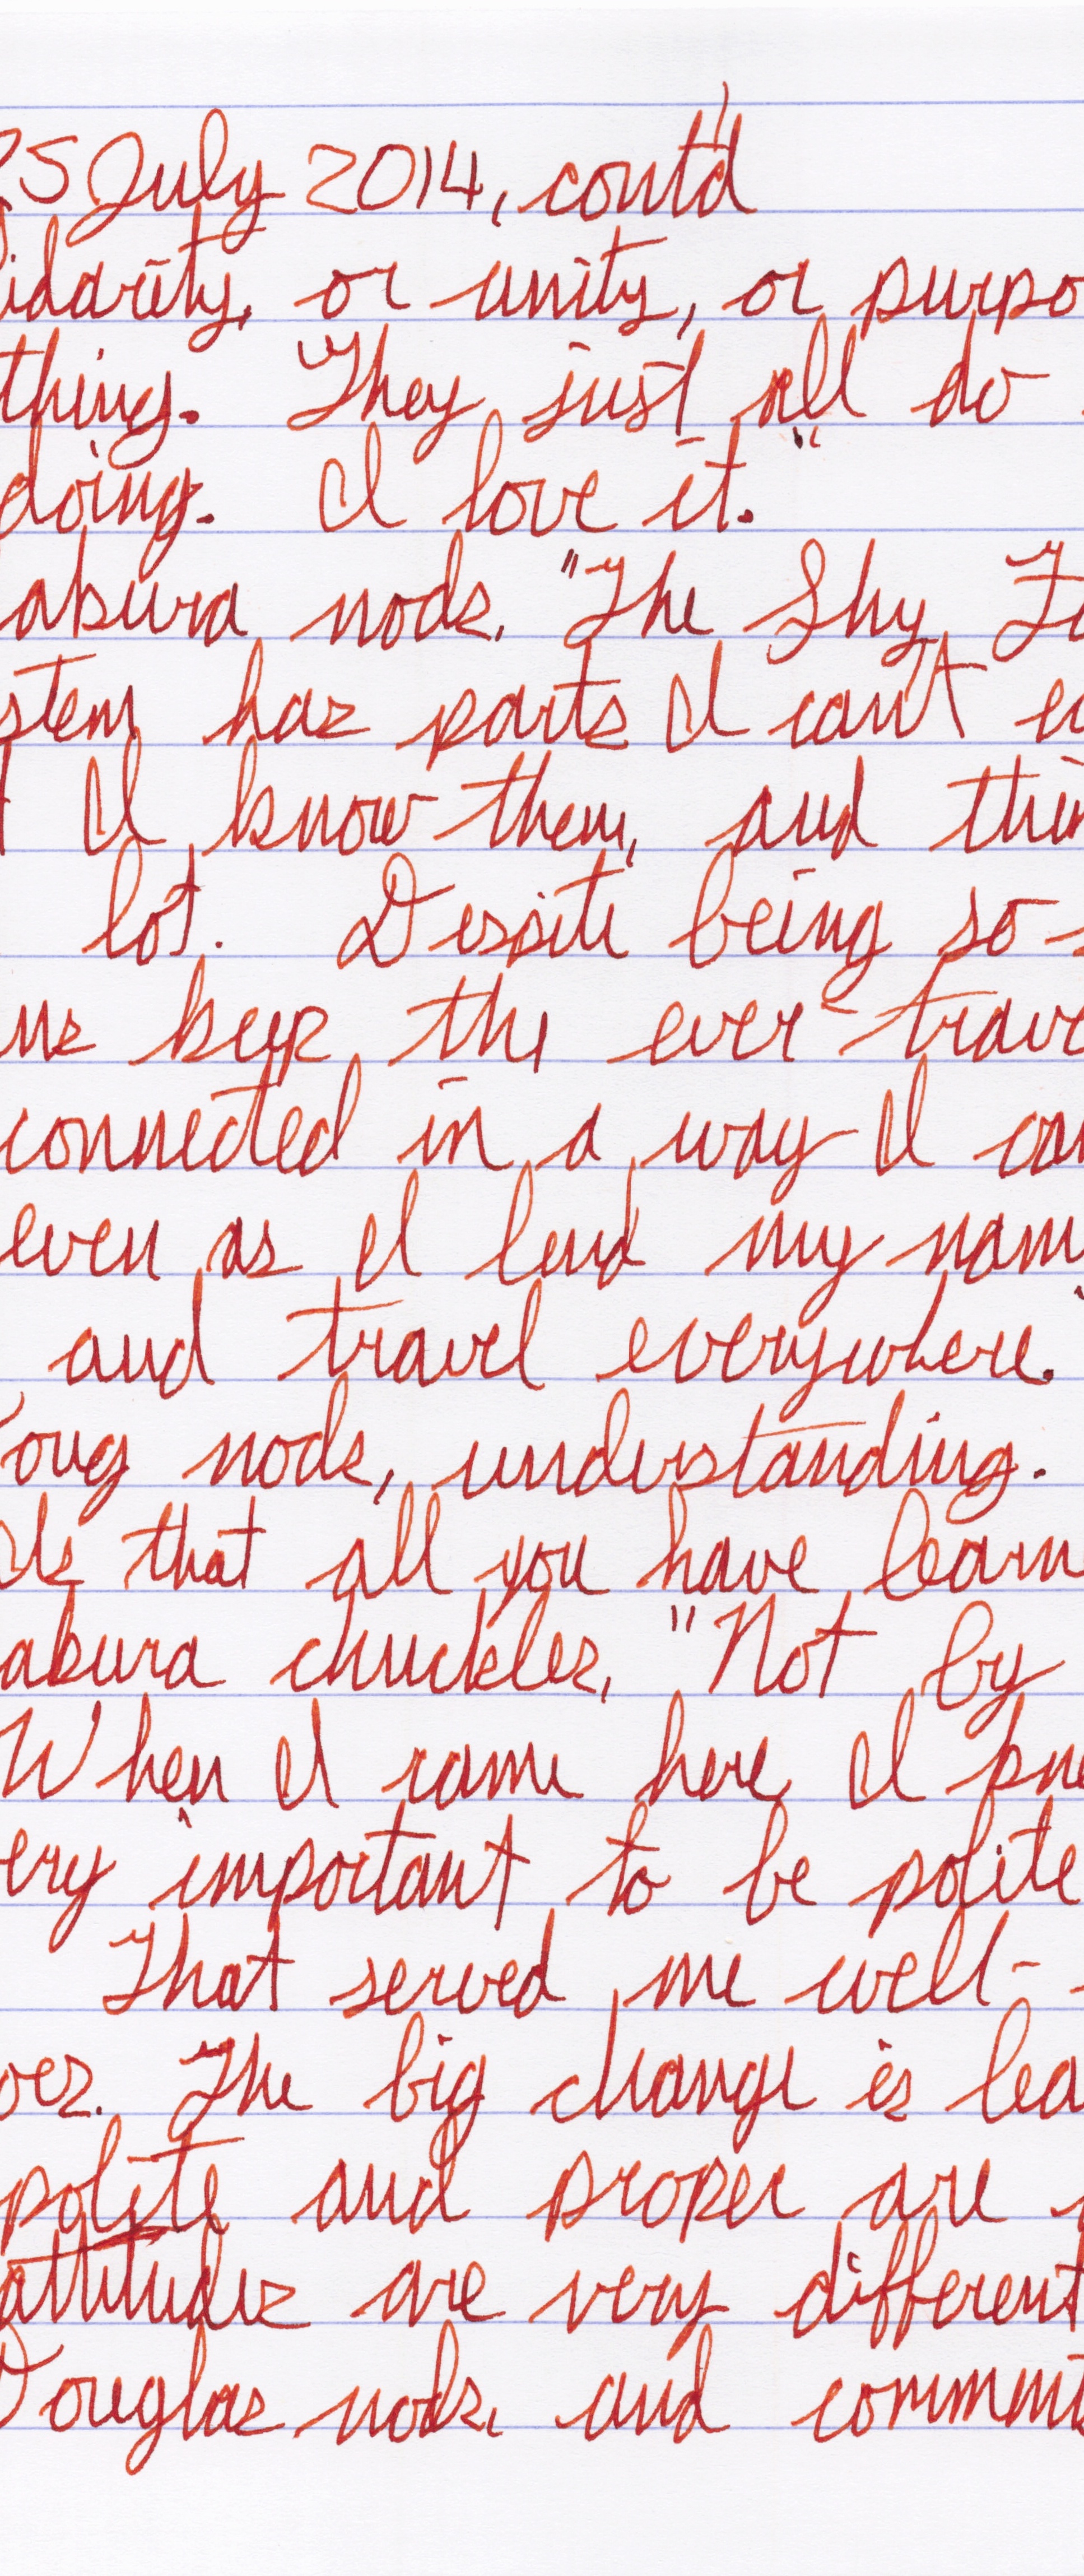 25 July 2014, cont'd
idarity, or unity, or purpo
thing. They just all do
doing. I love it."
akura nods. "The Shy Fo
stem has parts I can't ea
I know them, and thin
lot. Despite being so
ns keep the ever-trave
connected in a way I can
even as I lend my nam
and travel everywhere."
oug nods, understanding.
"Is that all you have learne
akura chuckles, "Not by
When I came here I kne
ery important to be polite
That served me well-
oes. The big change is lea
polite and proper are
attitudes are very different
Douglas nods, and comment